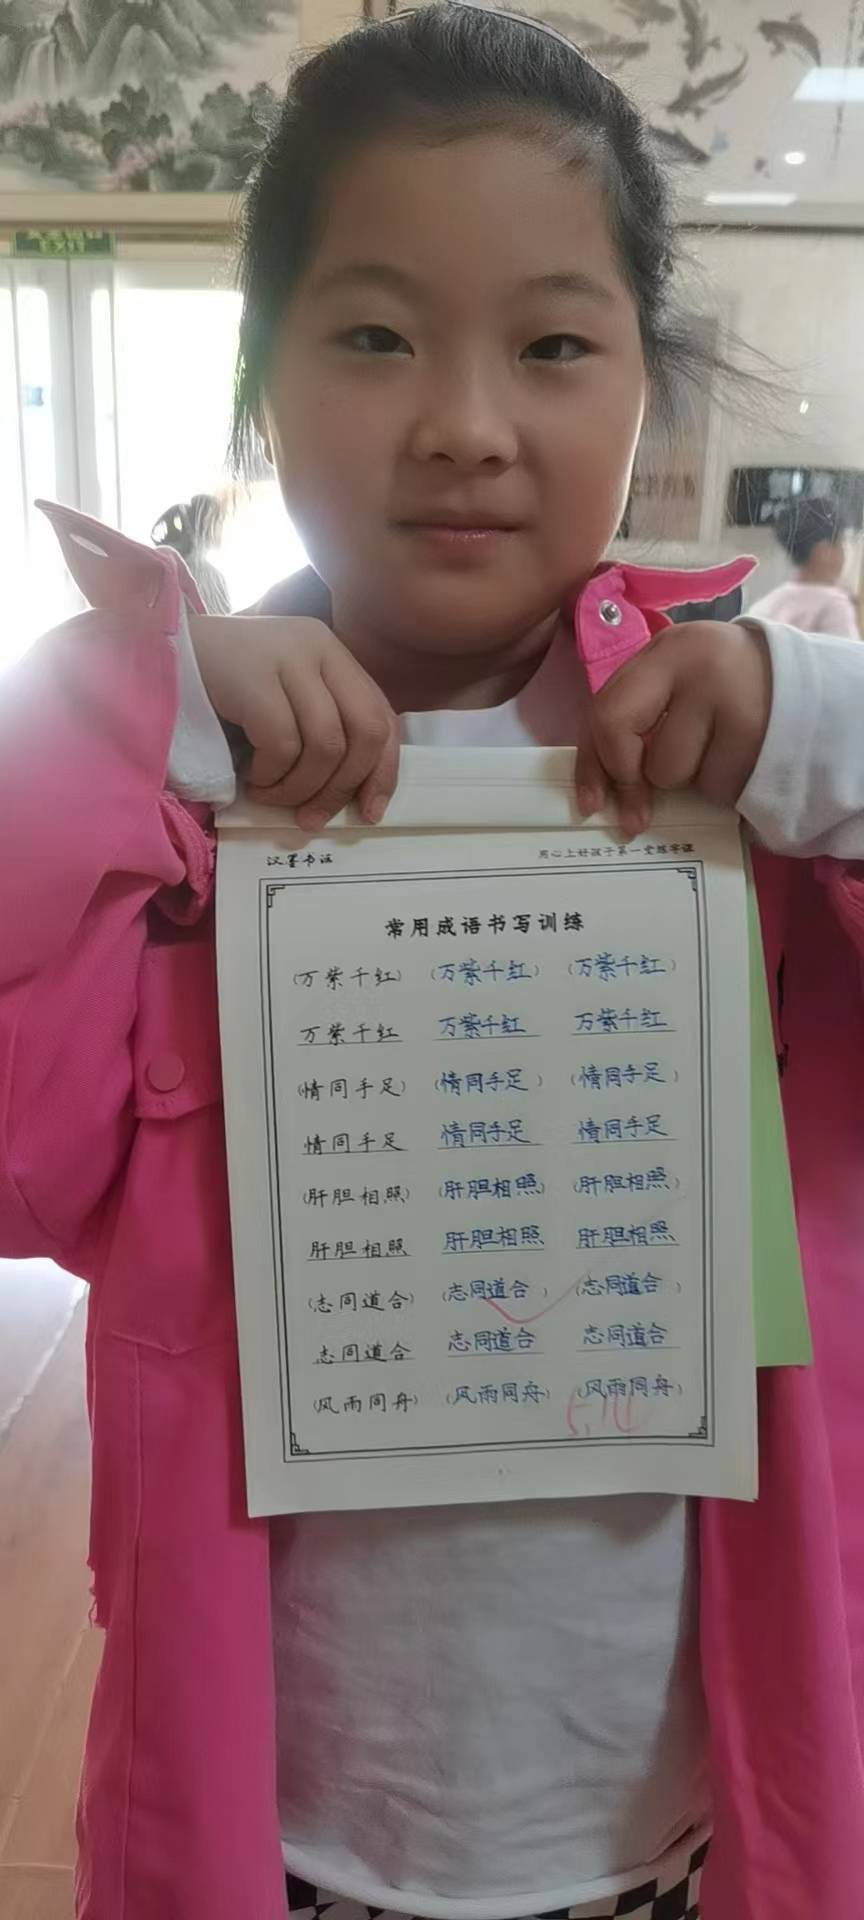 汉墨书法
用心上好孩子第一堂练字课
常用成语书写训练
(万紫千红) (万紫千红) (万紫千红)
万紫千红 万紫千红 万紫千红
(情同手足) (情同手足) (情同手足)
情同手足 情同手足 情同手足
(肝胆相照) (肝胆相照) (肝胆相照)
肝胆相照 肝胆相照 肝胆相照
(志同道合) (志同道合) (志同道合)
志同道合 志同道合 志同道合
(风雨同舟) (风雨同舟) (风雨同舟)
5.14